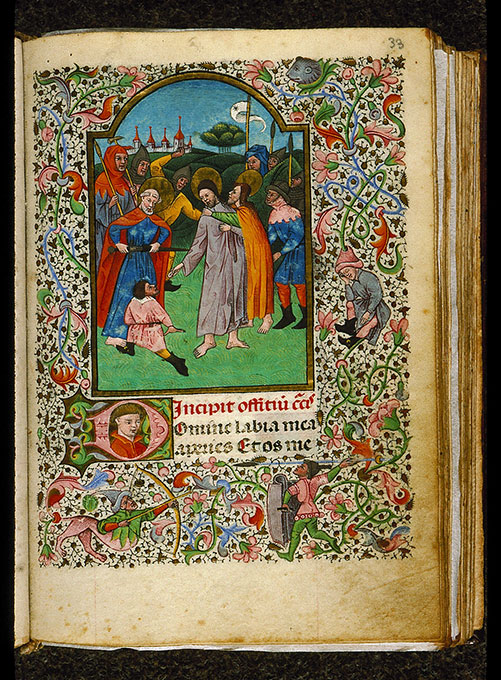 33
Incipit offitiū c̄c̄e
Domine labia mea
aperies Et os me